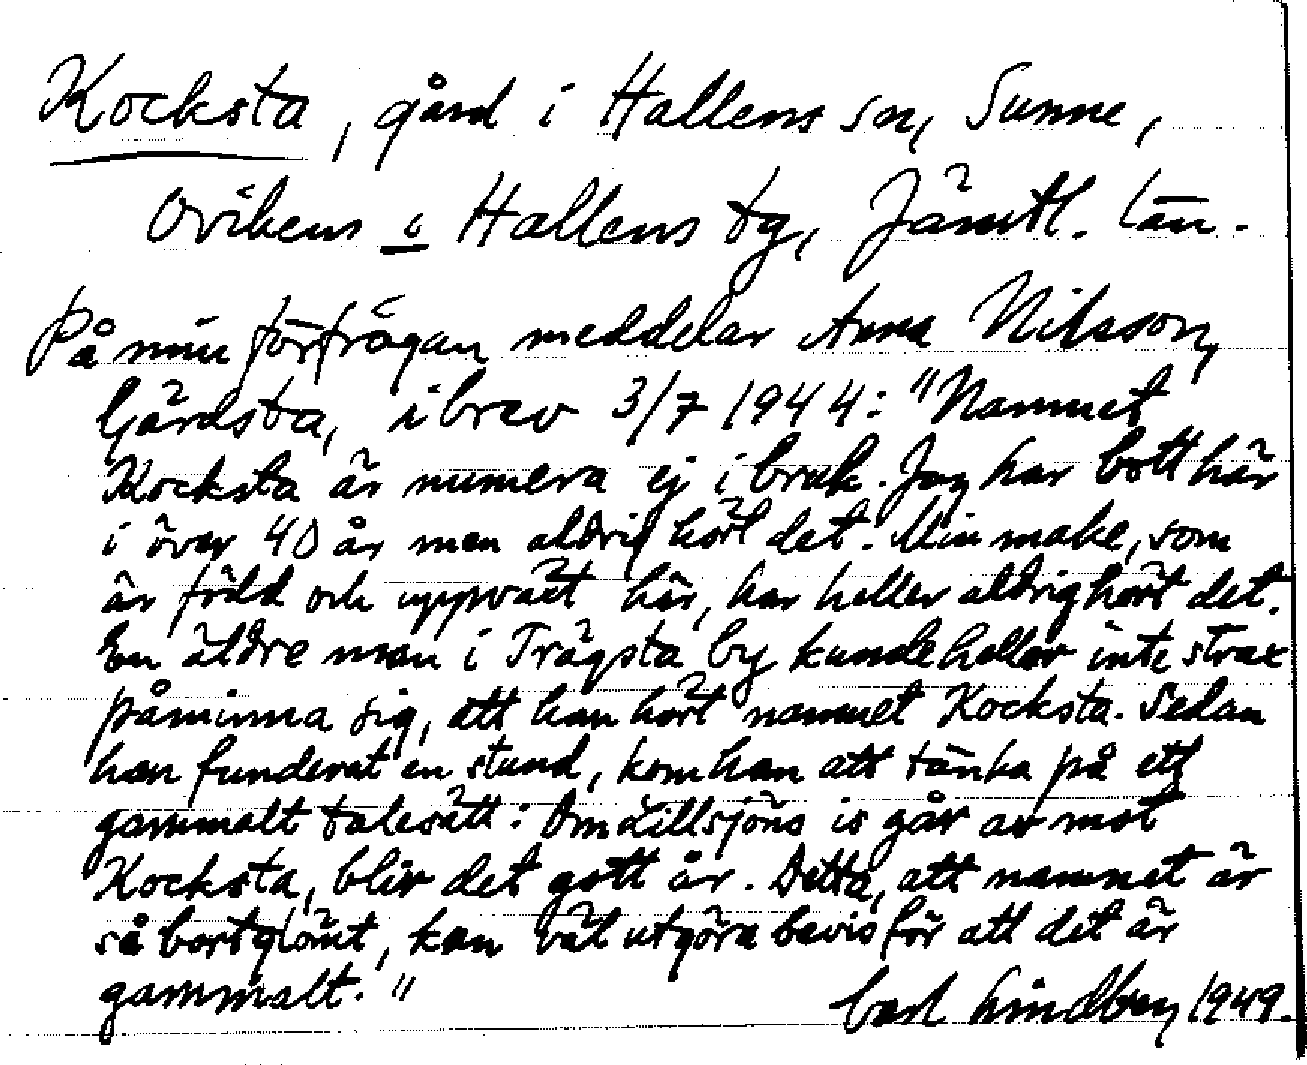 Kocksta, gård i Hallens sn, Sunne,
Ovikens o Hallens tg, Jämtl. län.
På min förfrågan meddelar Anna Nilsson,
Gärdsta, i brev 3/7 1944: "Namnet
Kocksta är numera ej i bruk. Jag har bott här
i över 40 år men aldrig hört det. Min make, som
är född och uppväxt här, har heller aldrig hört det.
En äldre man i Trägsta by kunde heller inte strax
påminna sig, att han hört namnet Kocksta. Sedan
han funderat en stund, kom han att tänka på ett
gammalt talesätt: Om Lillsjöns is går av mot
Kocksta, blir det gott år. Detta, att namnet är
så bortglömt, kan väl utgöra bevis för att det är
gammalt."
Carl Lindberg 1949.